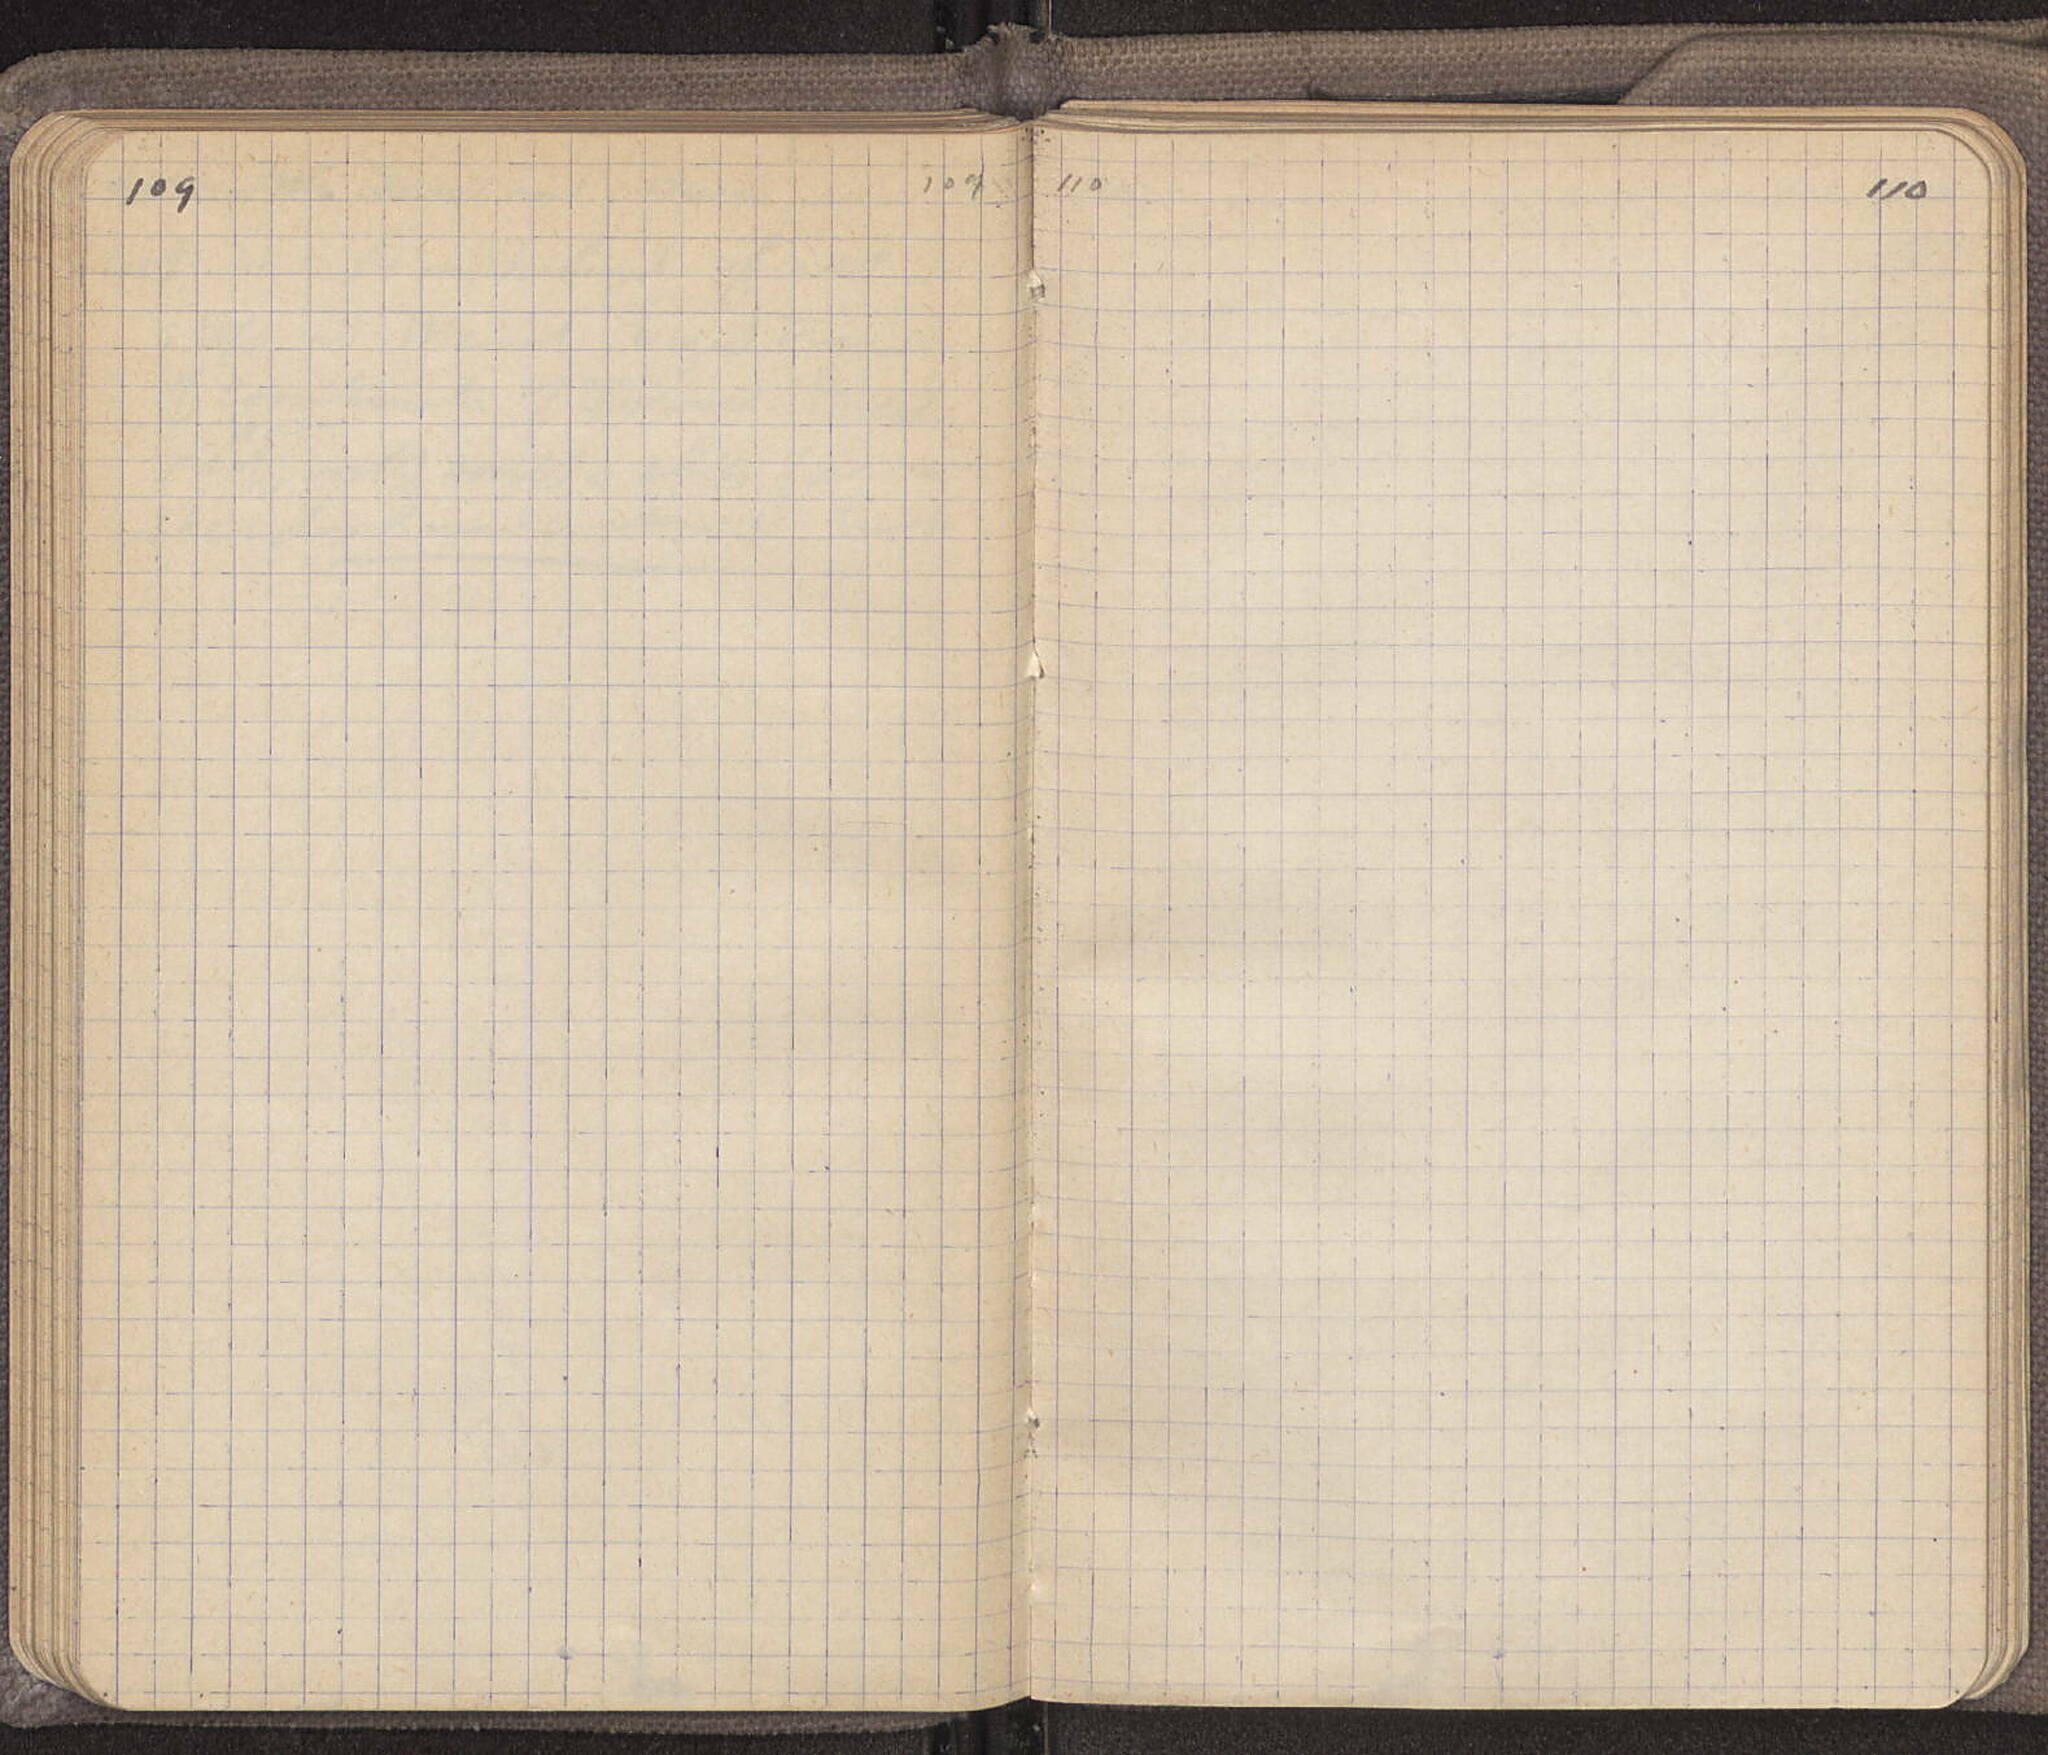 109 109 110 110